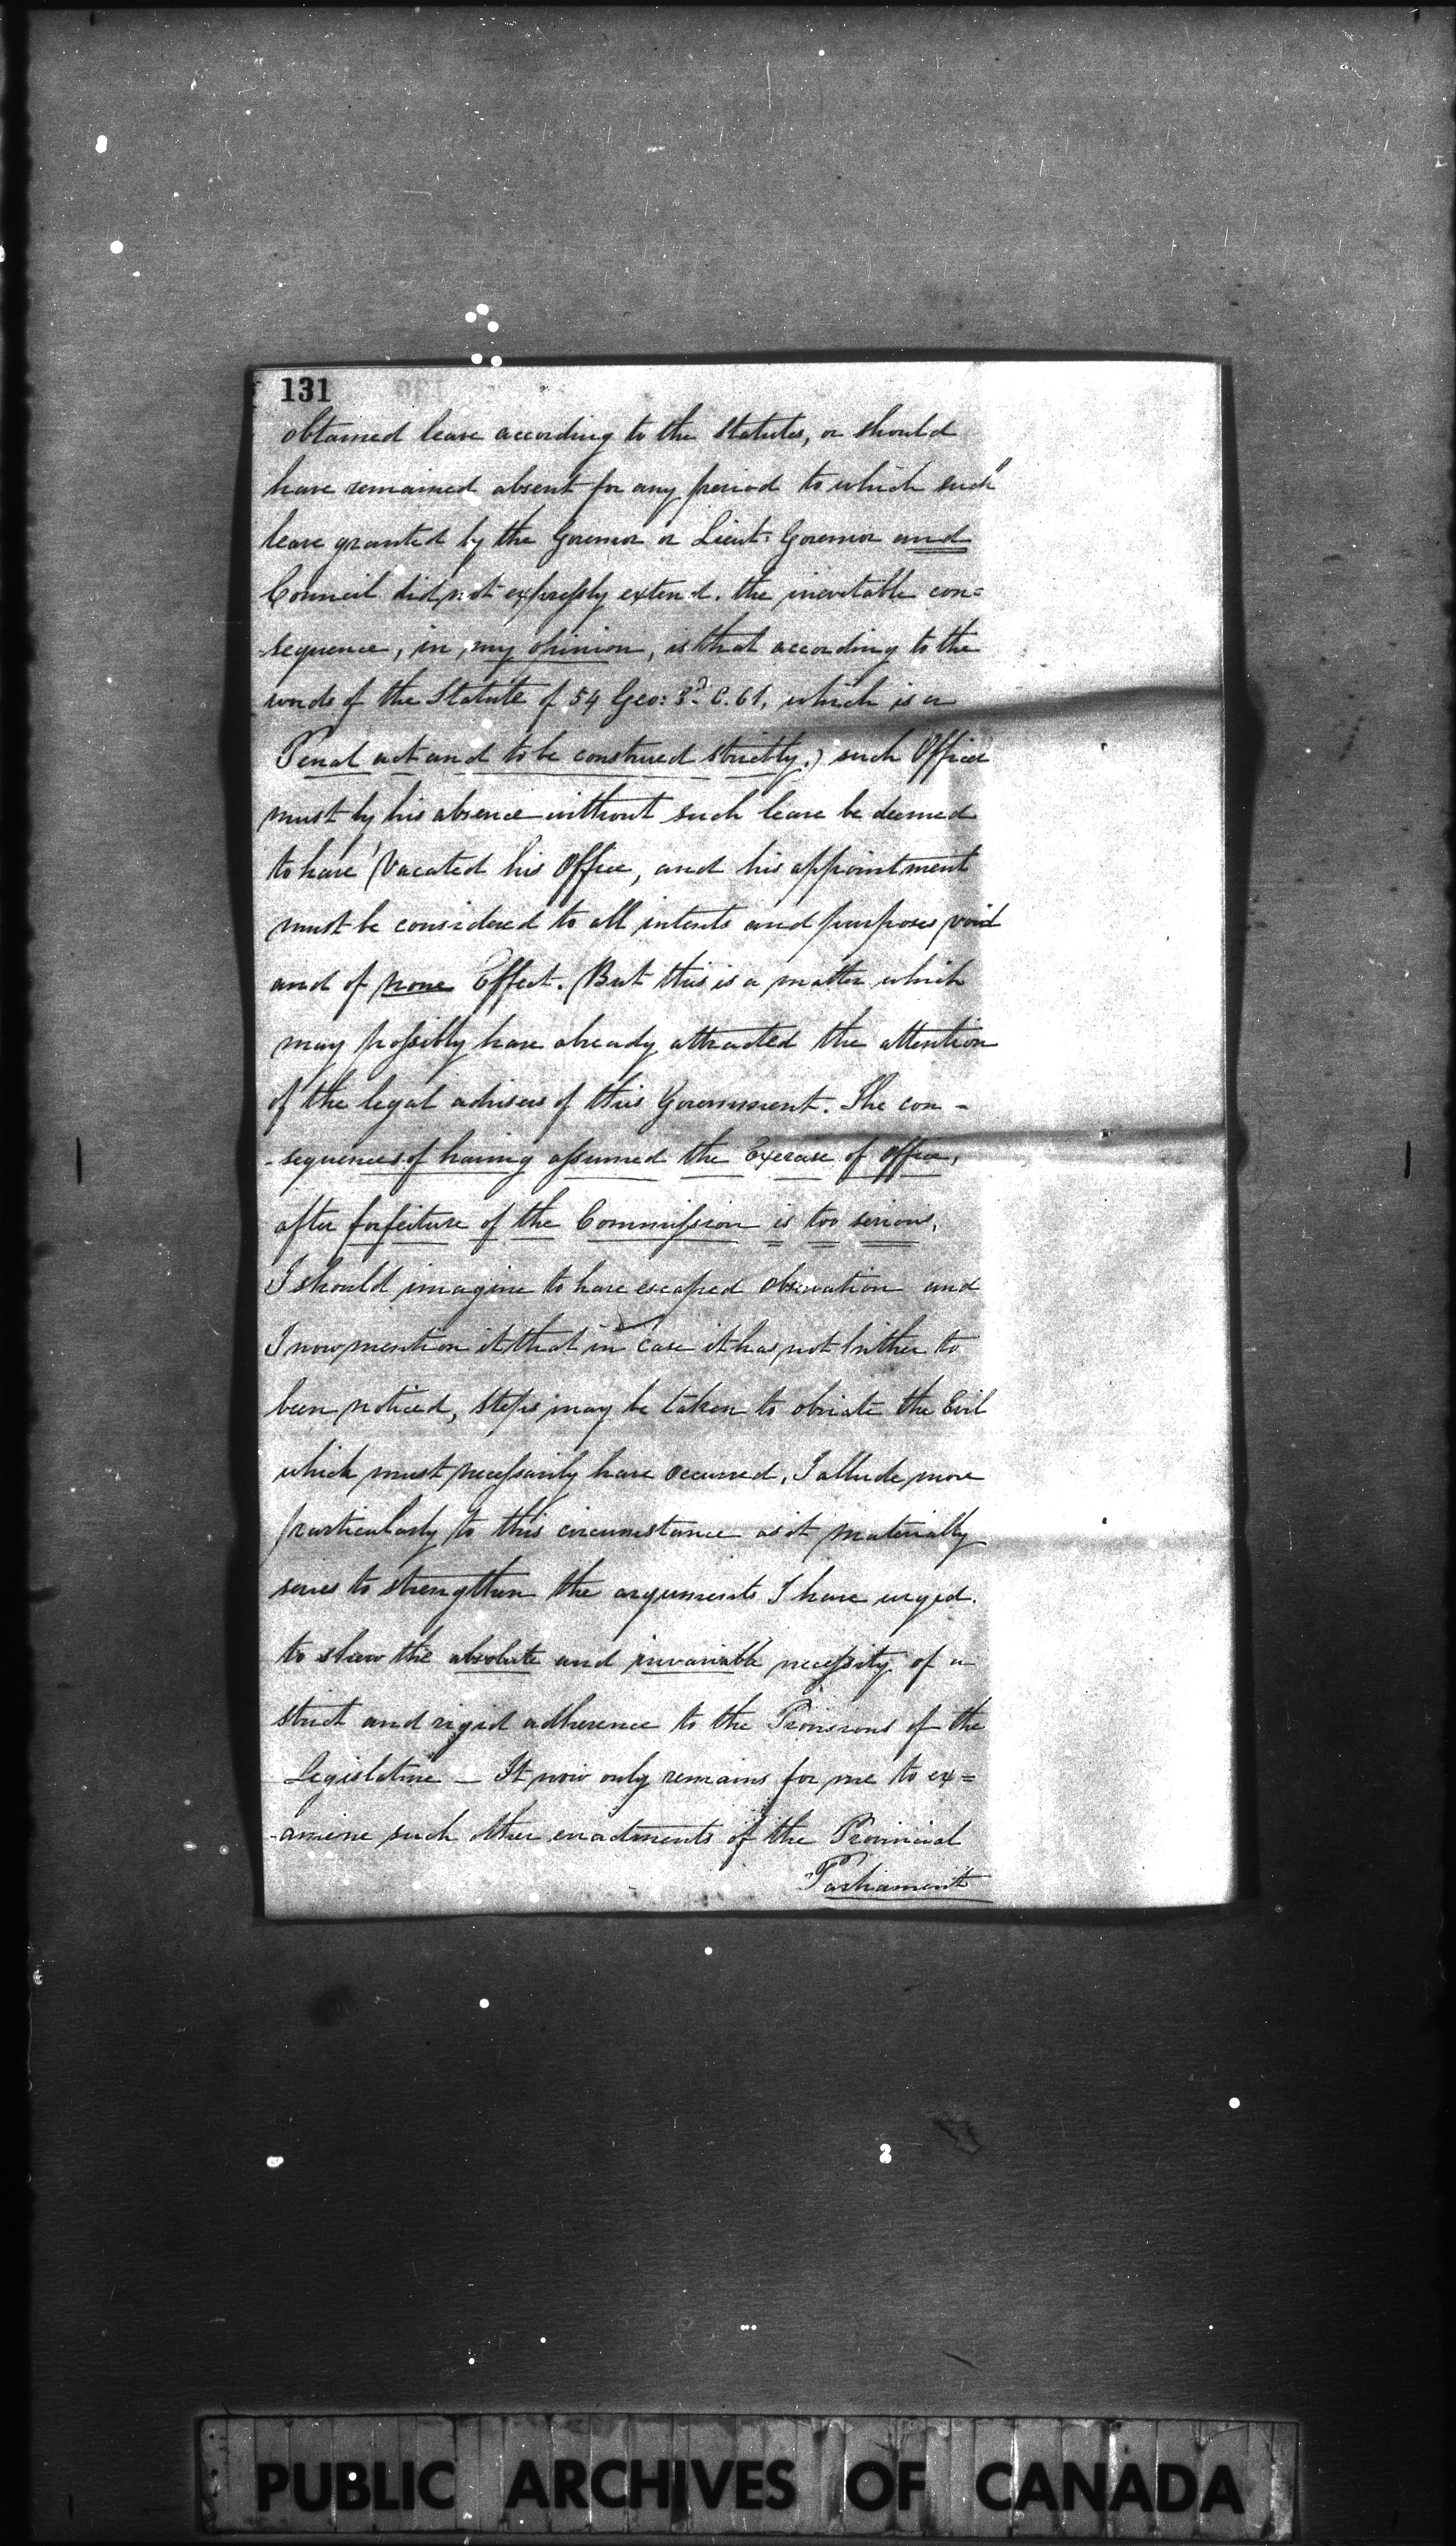 131
obtained leave according to the Statutes, or should
have remained absent for any period to which such
leave granted by the Governor or Lieut: Governor and
Council did not expressly extend. the inevitable con=
-sequence, in my opinion, is that according to the
words of the Statute of 54 Geo: 3d. C. 61, which is a
Penal act and to be construed strictly.) such Officer
must by his absence without such leave be deemed
to have vacated his Office, and his appointment
must be considered to all intents and purposes void
and of none Effect. (But this is a matter which
may possibly have already attracted the attention
of the legal advisers of this Government. The con-
-sequences of having assumed the Exercise of Office,
after forfeiture of the Commission is too serious,
I should imagine to have escaped observation and
I now mention it that in case it has not hither to
been noticed, steps may be taken to obviate the Evil
which must necessarily have occurred. I allude more
particularly to this circumstance as it materially
serves to strengthen the arguments I have urged.
to shew the absolute and invariable necessity of a
strict and rigid adherence to the Provisions of the
Legislature — It now only remains for me to ex=
-amine such other enactments of the Provincial
Parliament
PUBLIC ARCHIVES OF CANADA